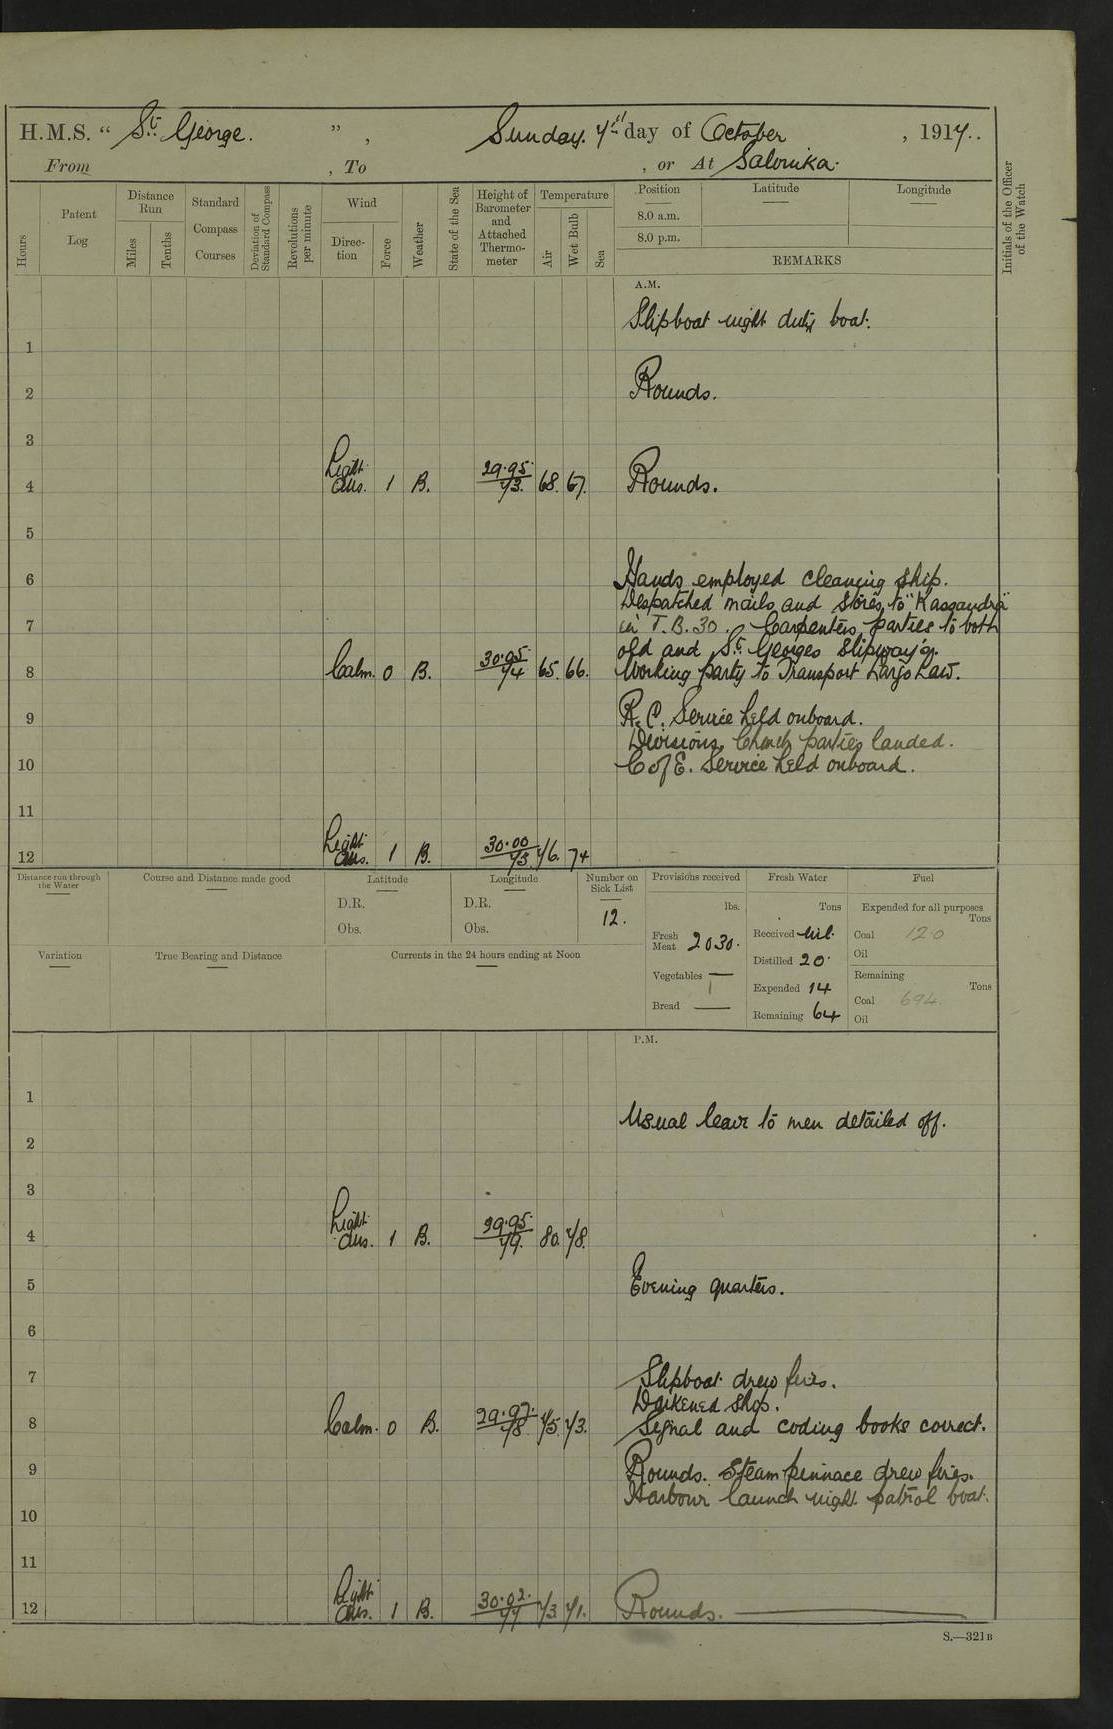 H.M.S. “ St. George. ” , Sunday. 7th day of October , 1917..
From , To , or At Salonika.
Hours
Patent Log
Distance Run
Miles
Tenths
Standard Compass Courses
Deviation of Standard Compass
Revolutions per minute
Wind
Direction
Force
Weather
State of the Sea
Height of Barometer and Attached Thermometer
Temperature
Air
Wet Bulb
Sea
Position
Latitude
Longitude
8.0 a.m.
8.0 p.m.
REMARKS
Initials of the Officer of the Watch
A.M.
Slipboat night duty boat.
1
2 Rounds.
3
4 Light Airs. 1 B. 29.95 73. 68. 67. Rounds.
5
6 Hands employed cleaning ship.
Despatched mails and stores to "Kassandra"
7 in T.B. 30. Carpenters parties to both
old and St. Georges Slipway's.
8 Calm. 0 B. 30.05 74 65. 66. Working party to Transport Largo Law.
9 R.C. Service held onboard.
Divisions, Church parties landed.
10 C of E. Service held onboard.
11
12 Light Airs. 1 B. 30.00 73. 76. 74
Distance run through the Water
Course and Distance made good
Latitude
D.R.
Obs.
Longitude
D.R.
Obs.
Number on Sick List
12.
Provisions received
lbs.
Fresh Meat 2030.
Vegetables —
Bread —
Fresh Water
Tons
Received Nil.
Distilled 20.
Expended 14
Remaining 64
Fuel
Expended for all purposes
Tons
Coal 120
Oil
Remaining
Tons
Coal 694.
Oil
Variation
True Bearing and Distance
Currents in the 24 hours ending at Noon
P.M.
1
Usual leave to men detailed off.
2
3
4 Light Airs. 1 B. 29.95. 79. 80. 78.
5 Evening quarters.
6
7 Slipboat drew fires.
Darkened Ship.
8 Calm. 0 B. 29.97. 78 75. 73. Signal and coding books correct.
9 Rounds. Steam pinnace drew fires.
Harbour launch night patrol boat.
10
11
12 Light Airs. 1 B. 30.02. 77 73. 71. Rounds.
S.—321B